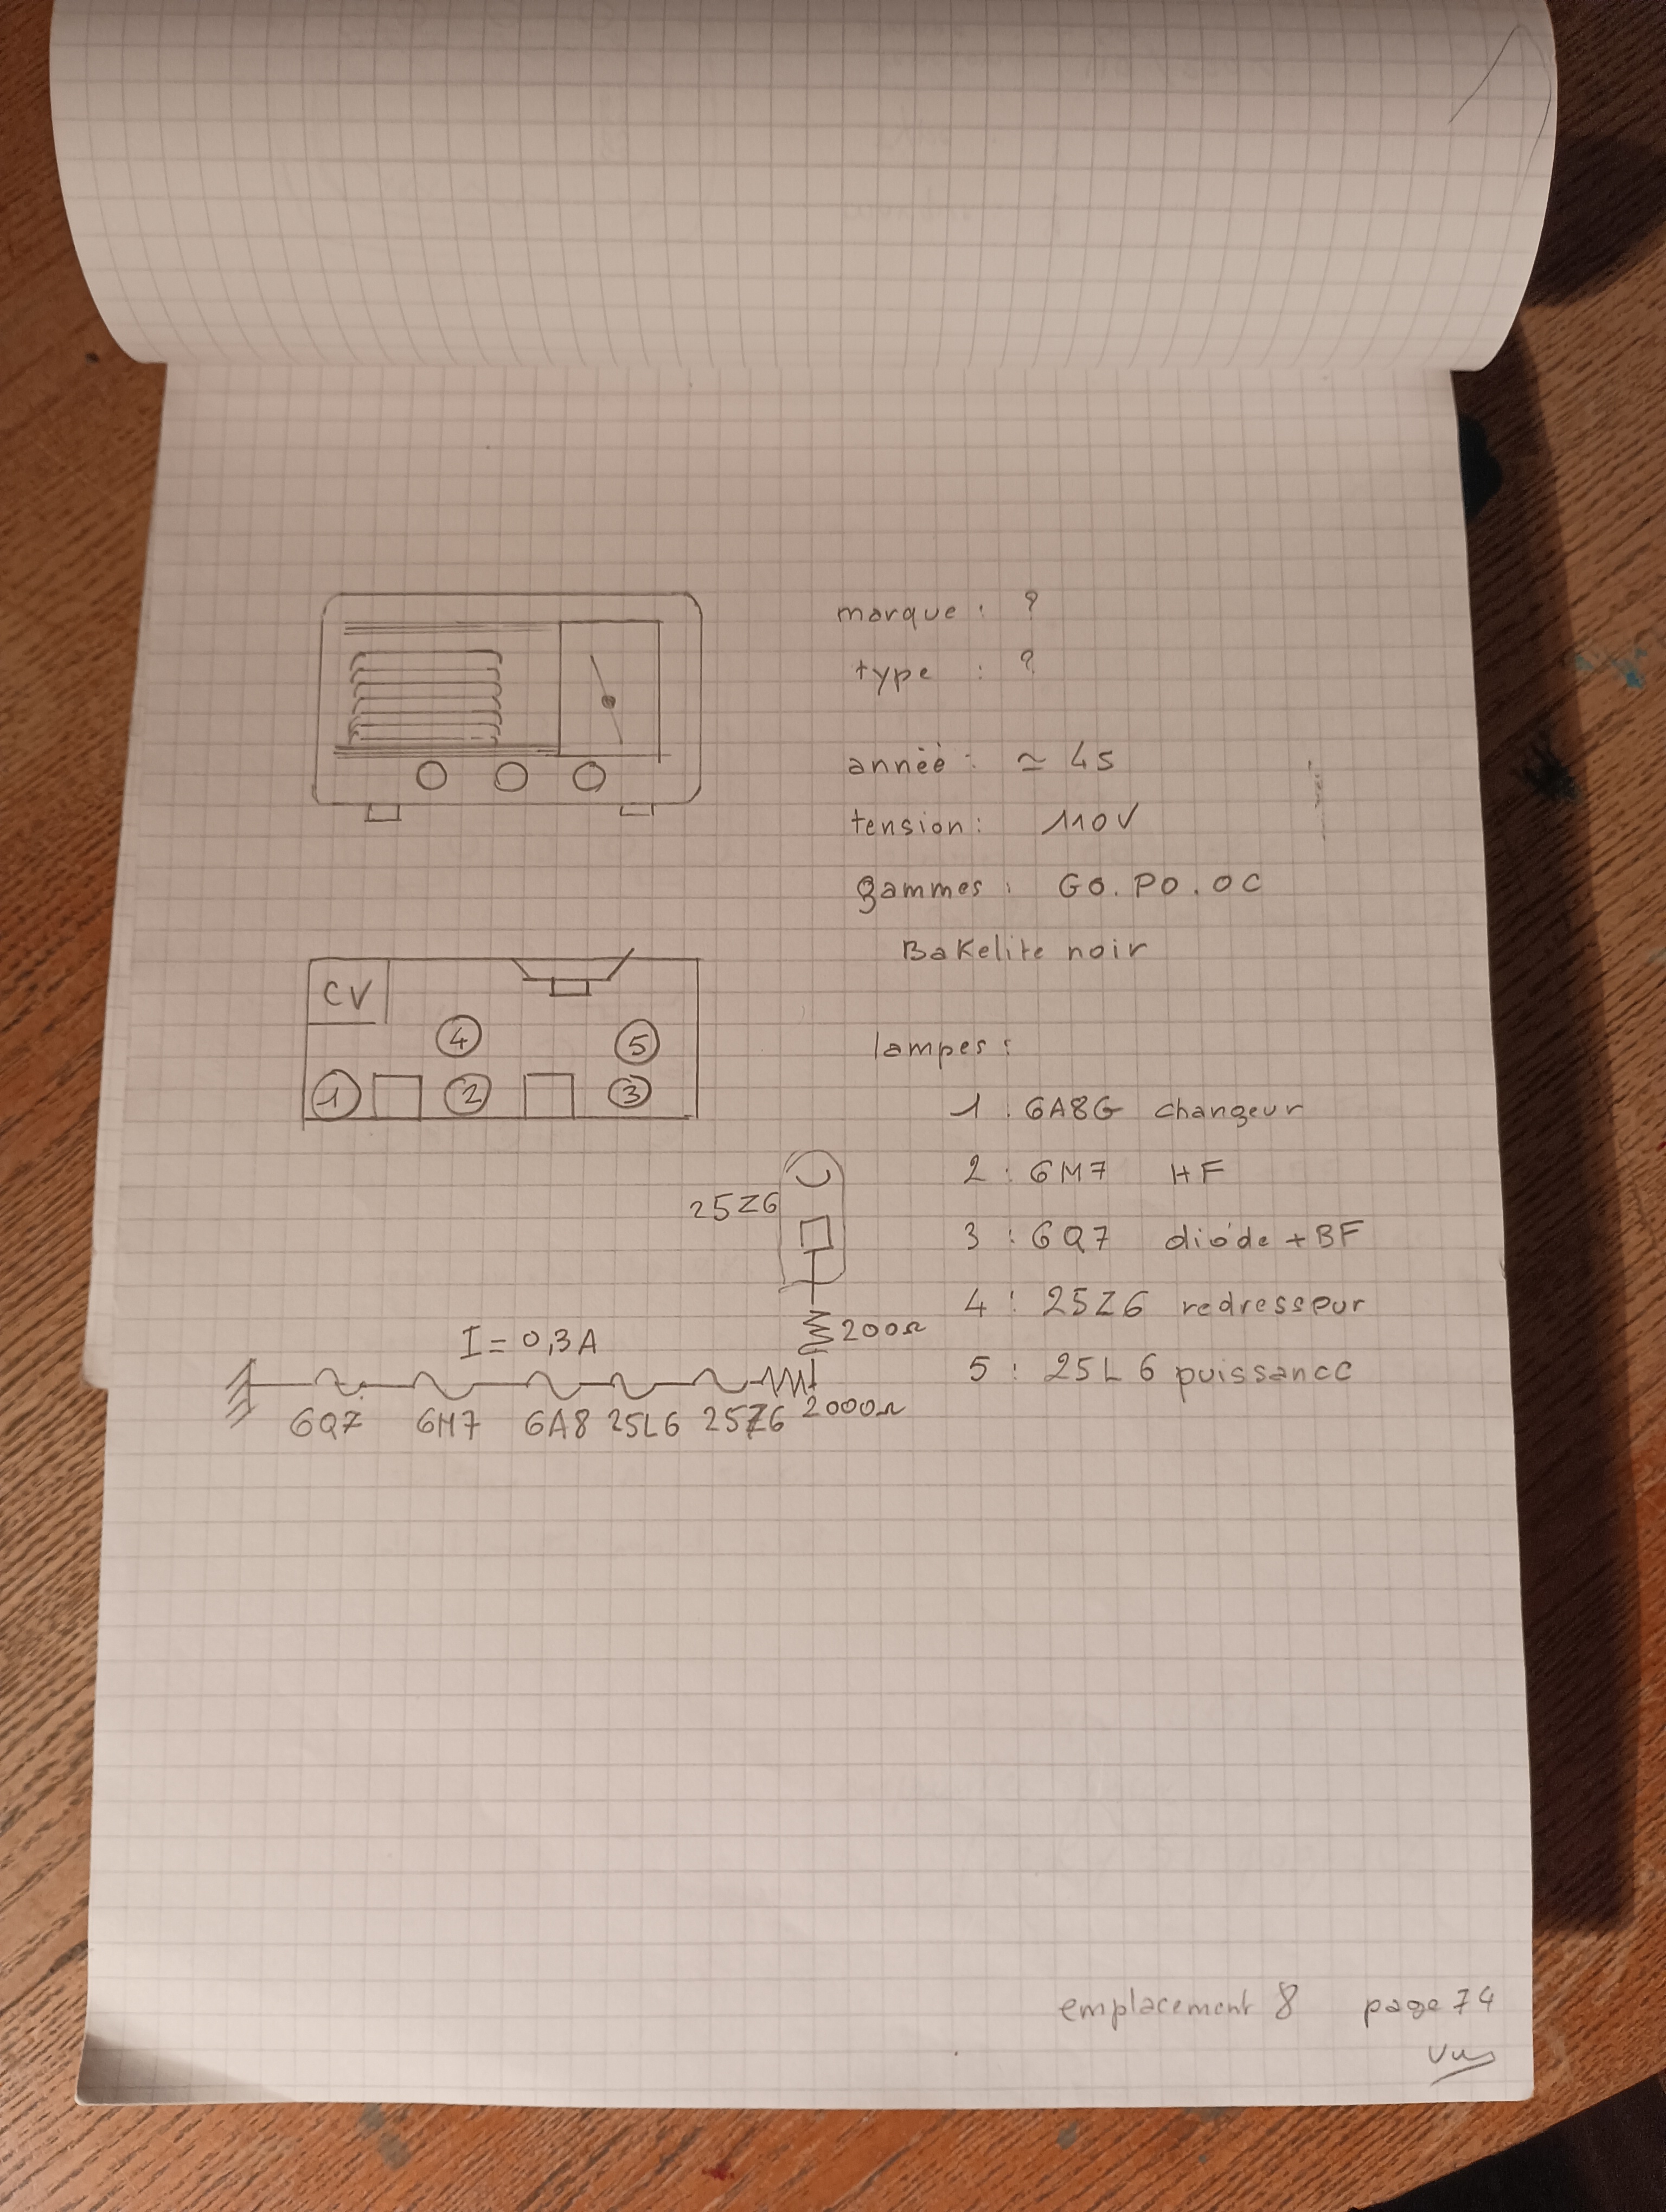 marque : ?
type : ?
année : ≃ 45
tension : 110V
gammes : GO.PO.OC
Bakelite noir
CV
4
5
1
2
3
lampes :
1 : 6A8G changeur
2 : 6M7 HF
3 : 6Q7 diode + BF
4 : 25Z6 redresseur
5 : 25L6 puissance
25Z6
200Ω
I = 0,3A
2000Ω
6Q7 6M7 6A8 25L6 25Z6
emplacement 8 page 74